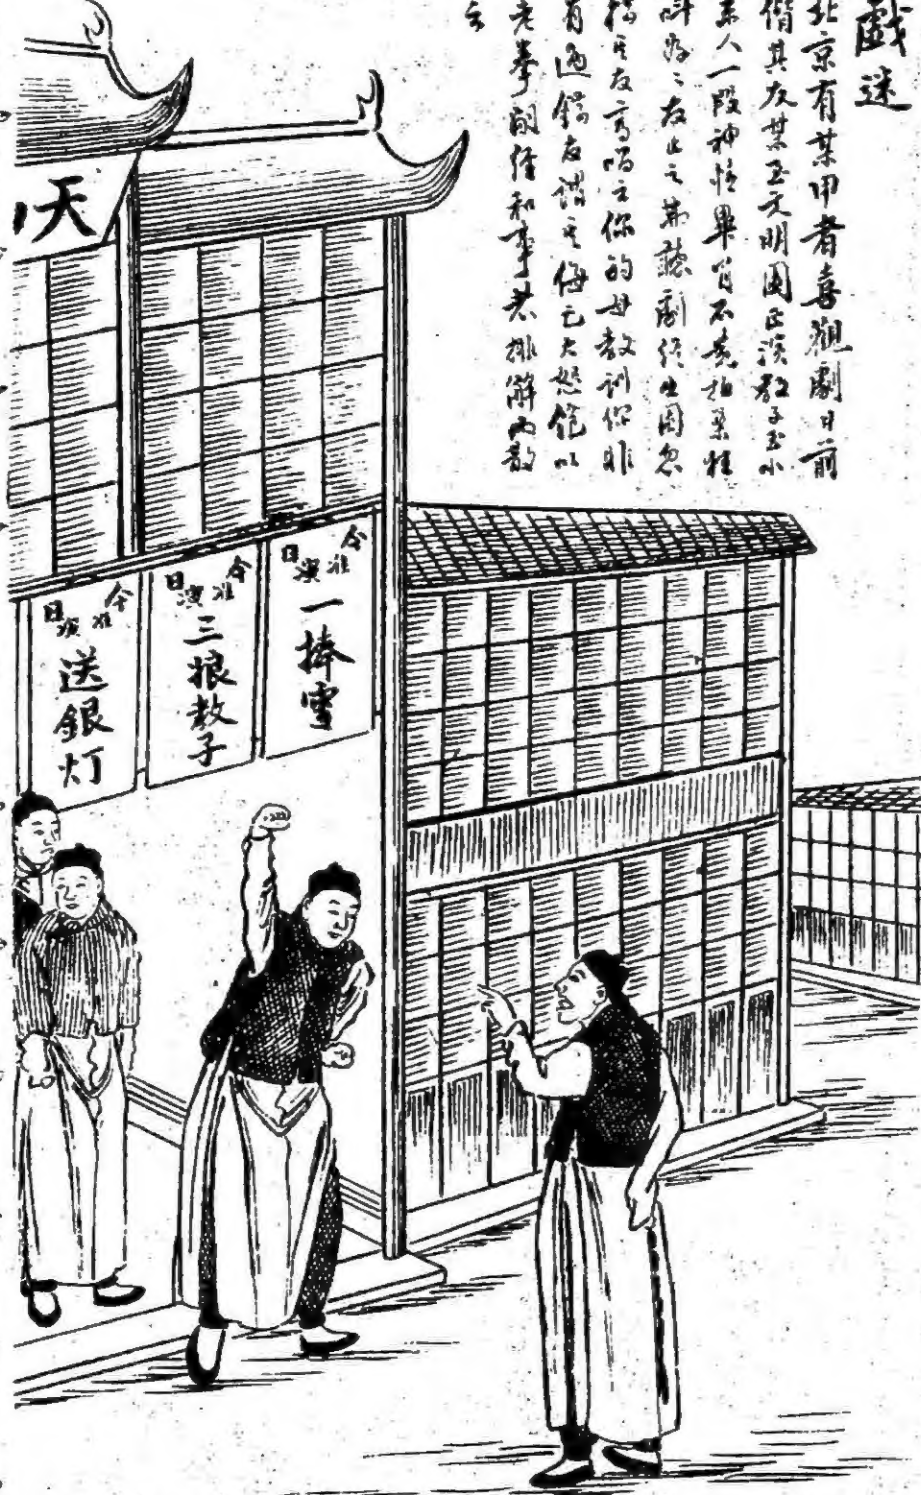 戲迷
北京有某甲者喜觀劇日前
偕其友某至文明園正演教子至小
東人一段神情畢肖不拍案狂
呌好〻友止之聽劇終出園忽
指其友高唱云你的母教訓你非
有過錯友謂其侮己大怒飽以
老拳嗣經和事者排解而散
云
天
今日准演
一捧雪
今日准演
三娘教子
今日准演
送銀灯